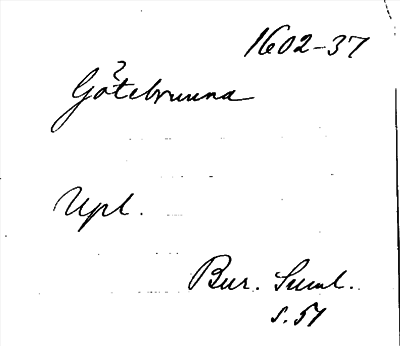 1602-37
?
Götebrunna
Upl.
Bur. Suml.
s. 51